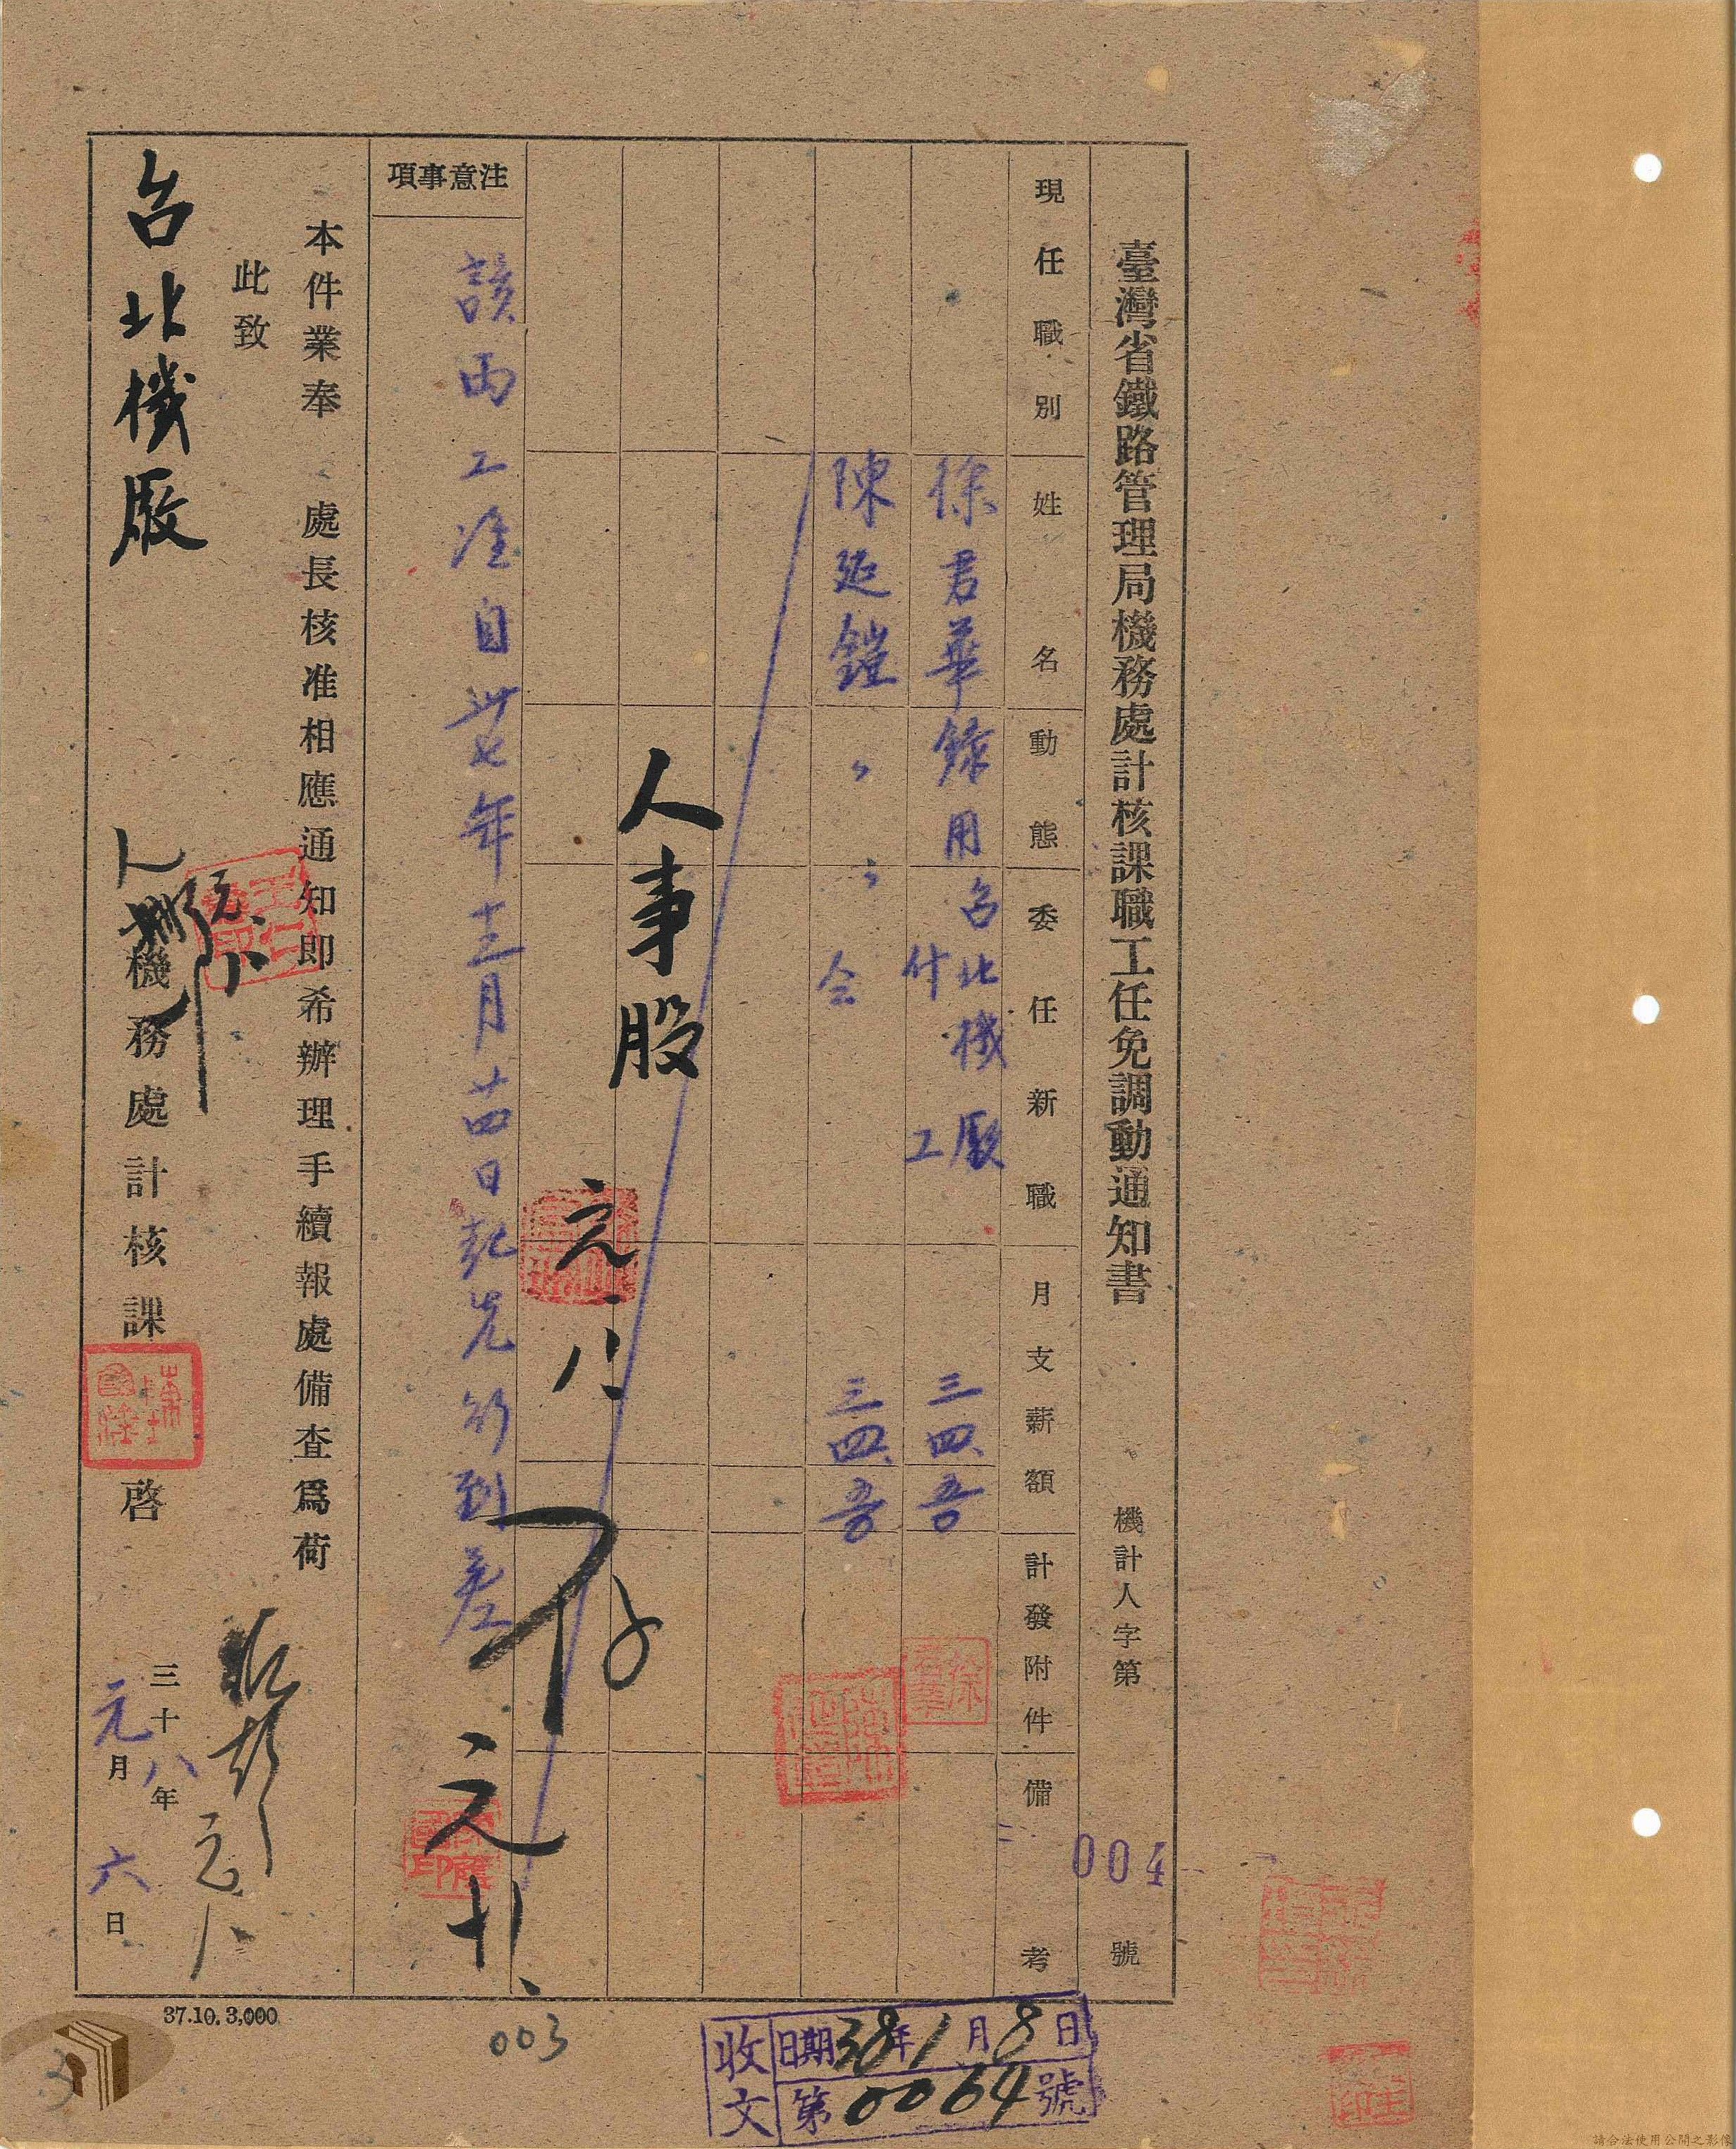 臺灣省鐵路管理局機務處計核課職工任免調動通知書
機計人字第004號
現任職別 姓名 動態 委任新職 月支薪額 計發附件 備考
徐君華 錄用 台北機廠付工 三四、吾
陳延鎧 〃 〃 仝 三四、吾
人事股
元、八、
存
元、十、
注意事項
該兩工准自卅七年十二月廿四日起先行到差
本件業奉 處長核准相應通知即希辦理手續報處備查爲荷
此致
台北機廠
機務處計核課 啓
三十八年
元月六日
元、八
37.10. 3,000
003
收文 日期38年1月8日
第0064號
3
請合法使用公開之影像